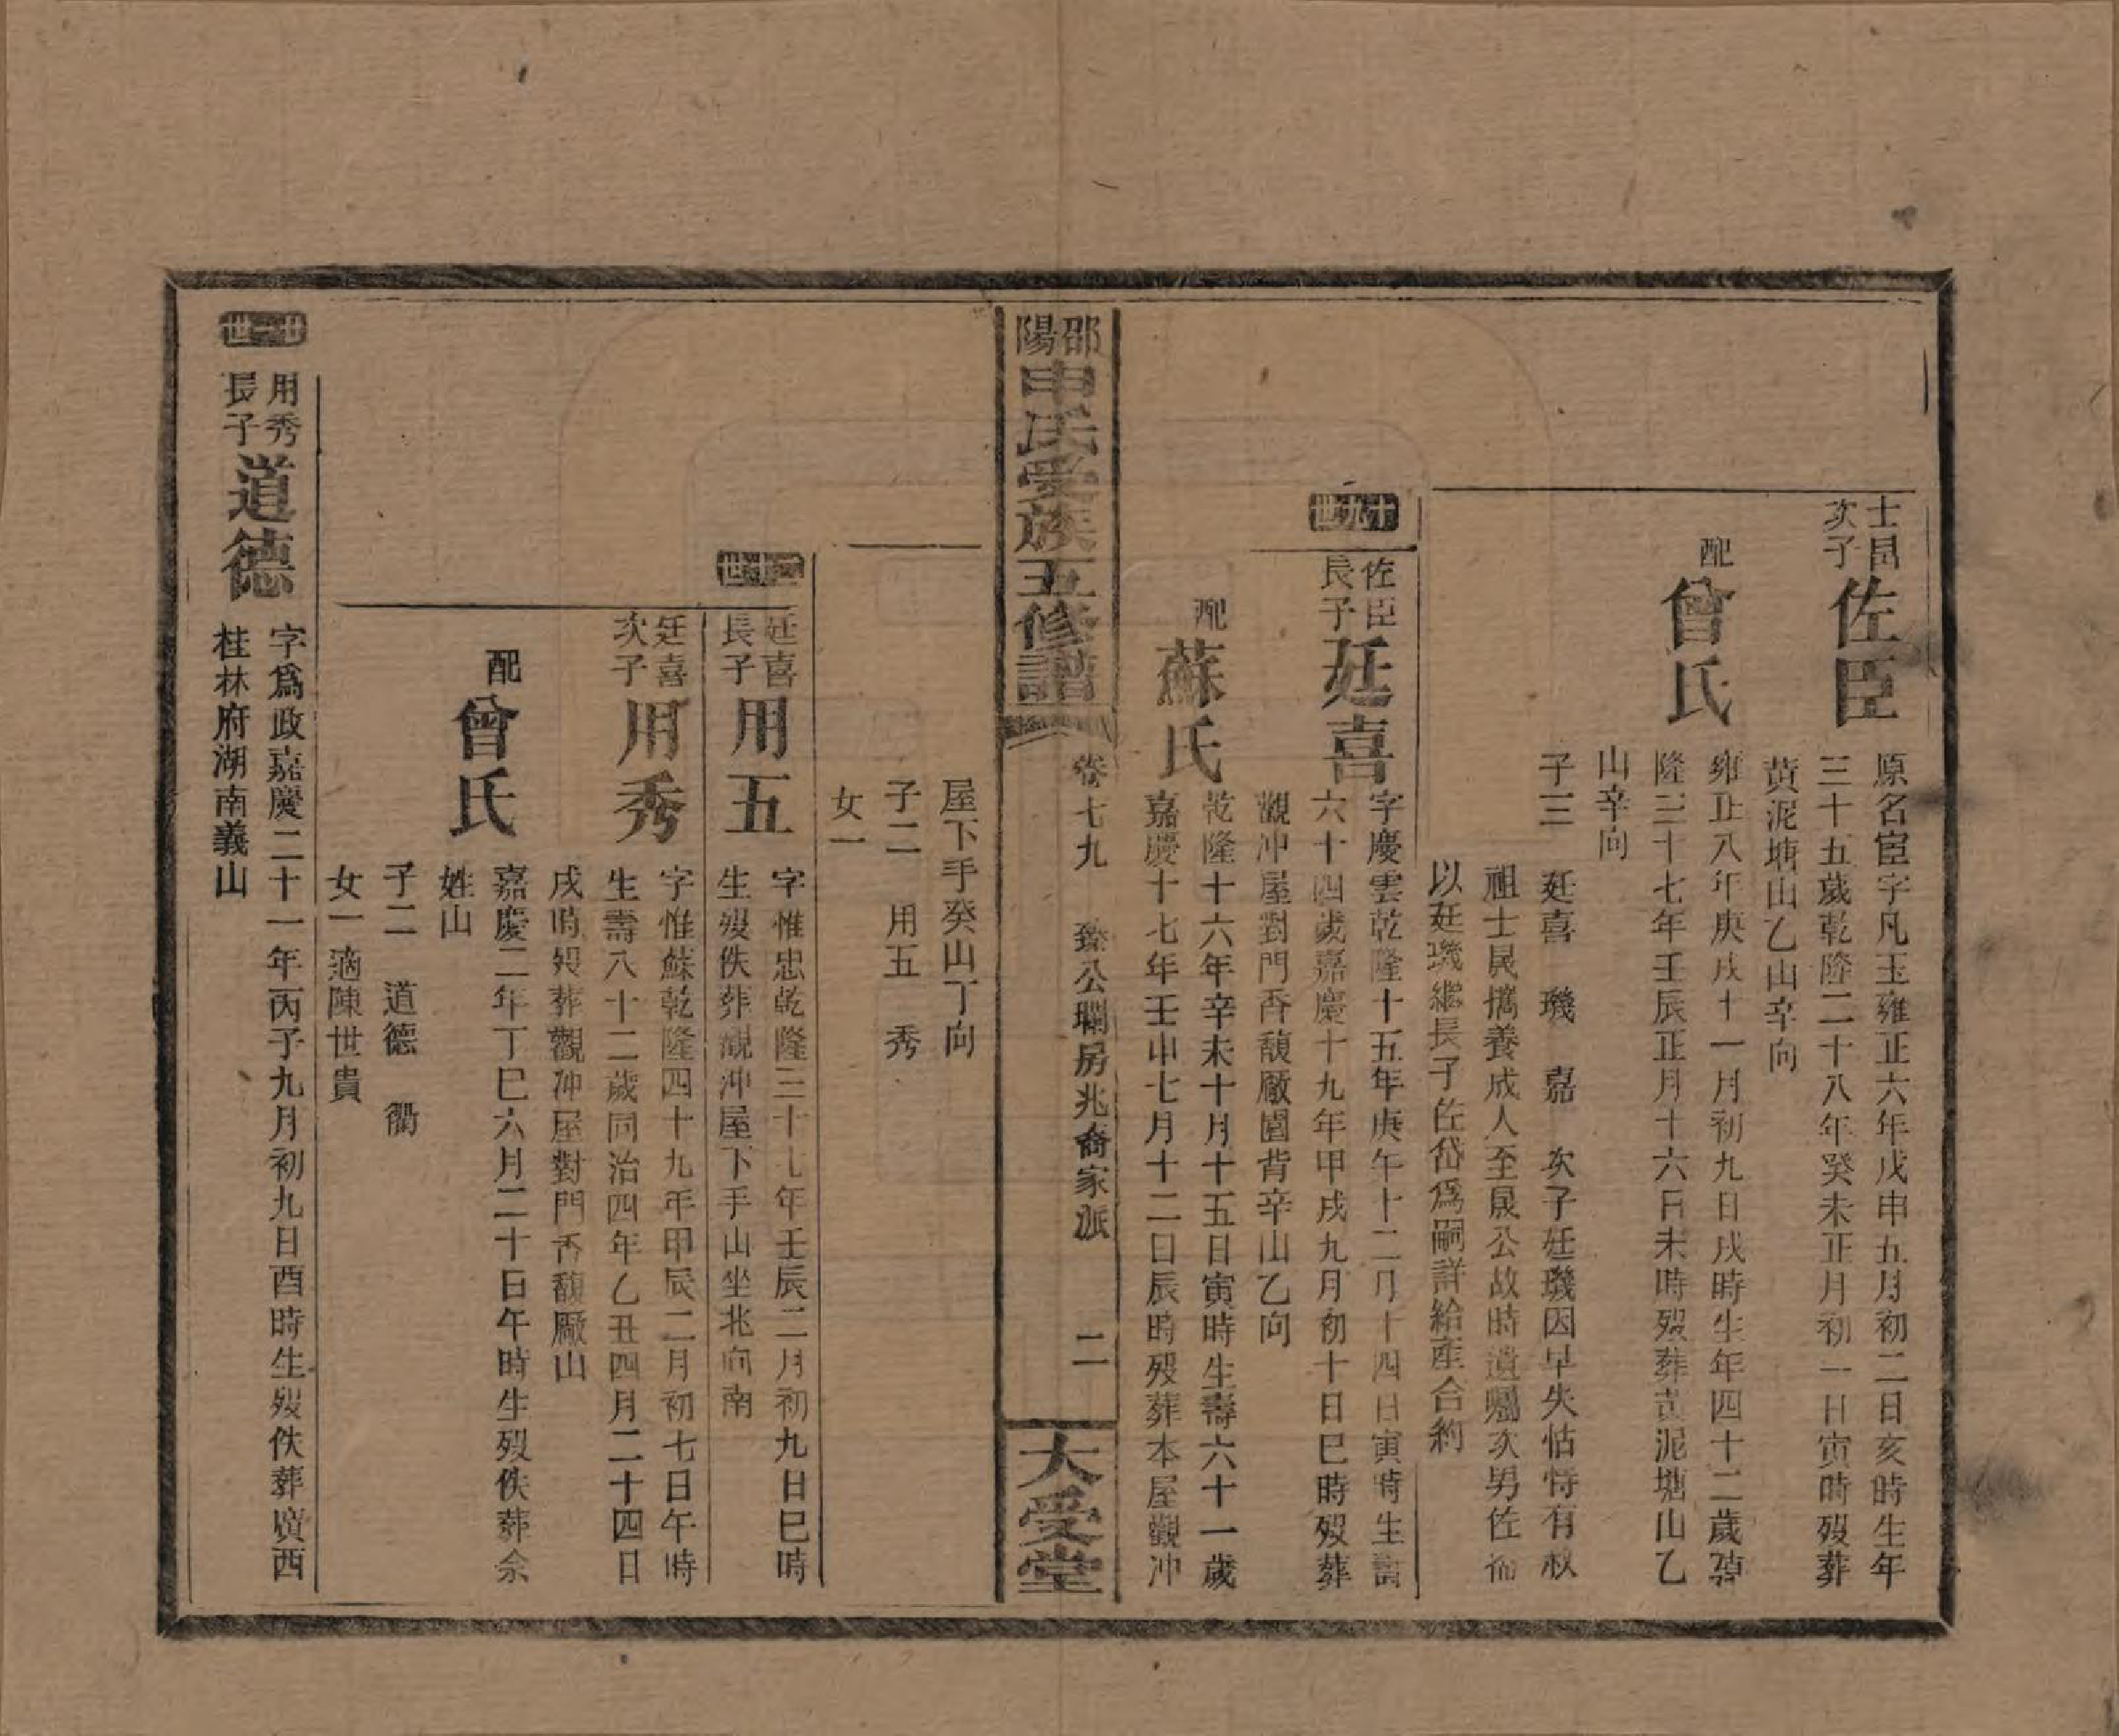 士昌
次子
佐臣
原名宦字凡玉雍正六年戊申五月初二日亥時生年
三十五歲乾隆二十八年癸未正月初一日寅時歿葬
黄泥塘山乙山辛向
配
曾氏
雍正八年庚戌十一月初九日戌時生年四十二歲
隆三十七年壬辰正月十六日未時歿葬黄泥塘山乙
山辛向
子三 廷喜 璣 嘉 次子廷璣因早失怙恃有叔
祖士晟撫養成人至晟公故時遺囑次男佐
以廷璣繼長子佐岱爲嗣詳給産合約
十九世
佐臣
長子
廷喜
字慶雲乾隆十五年庚午十二月十四日寅時生壽
六十四歲嘉慶十九年甲戌九月初十日巳時歿葬
觀冲屋對門香馥厰園背辛山乙向
配
蘇氏
乾隆十六年辛未十月十五日寅時生壽六十一歲
嘉慶十七年壬申七月十二日辰時歿葬本屋觀冲
邵陽
申氏受族五修譜
卷七九 臻公瓓房兆裔家派 二
大受堂
屋下手癸山丁向
子二 用五 秀
女一
二十世
廷喜
長子
用五
字惟忠乾隆三十七年壬辰二月初九日巳時
生歿佚葬觀冲屋下手山坐北向南
廷喜
次子
用秀
字惟蘇乾隆四十九年甲辰二月初七日午時
生壽八十二歲同治四年乙丑四月二十四日
戌時歿葬觀冲屋對門香馥厰山
配
曾氏
嘉慶二年丁巳六月二十日午時生歿佚葬佘
姓山
子二 道德 衢
女一適陳世貴
廿一世
用秀
長子
道德
字爲政嘉慶二十一年丙子九月初九日酉時生歿佚葬廣西
桂林府湖南義山